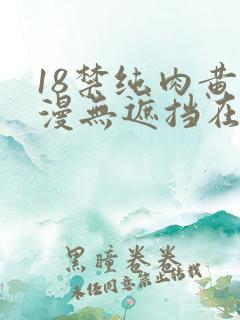 18禁纯肉黄
漫無遮挡在
黑瞳卷卷
未任同意禁止转载